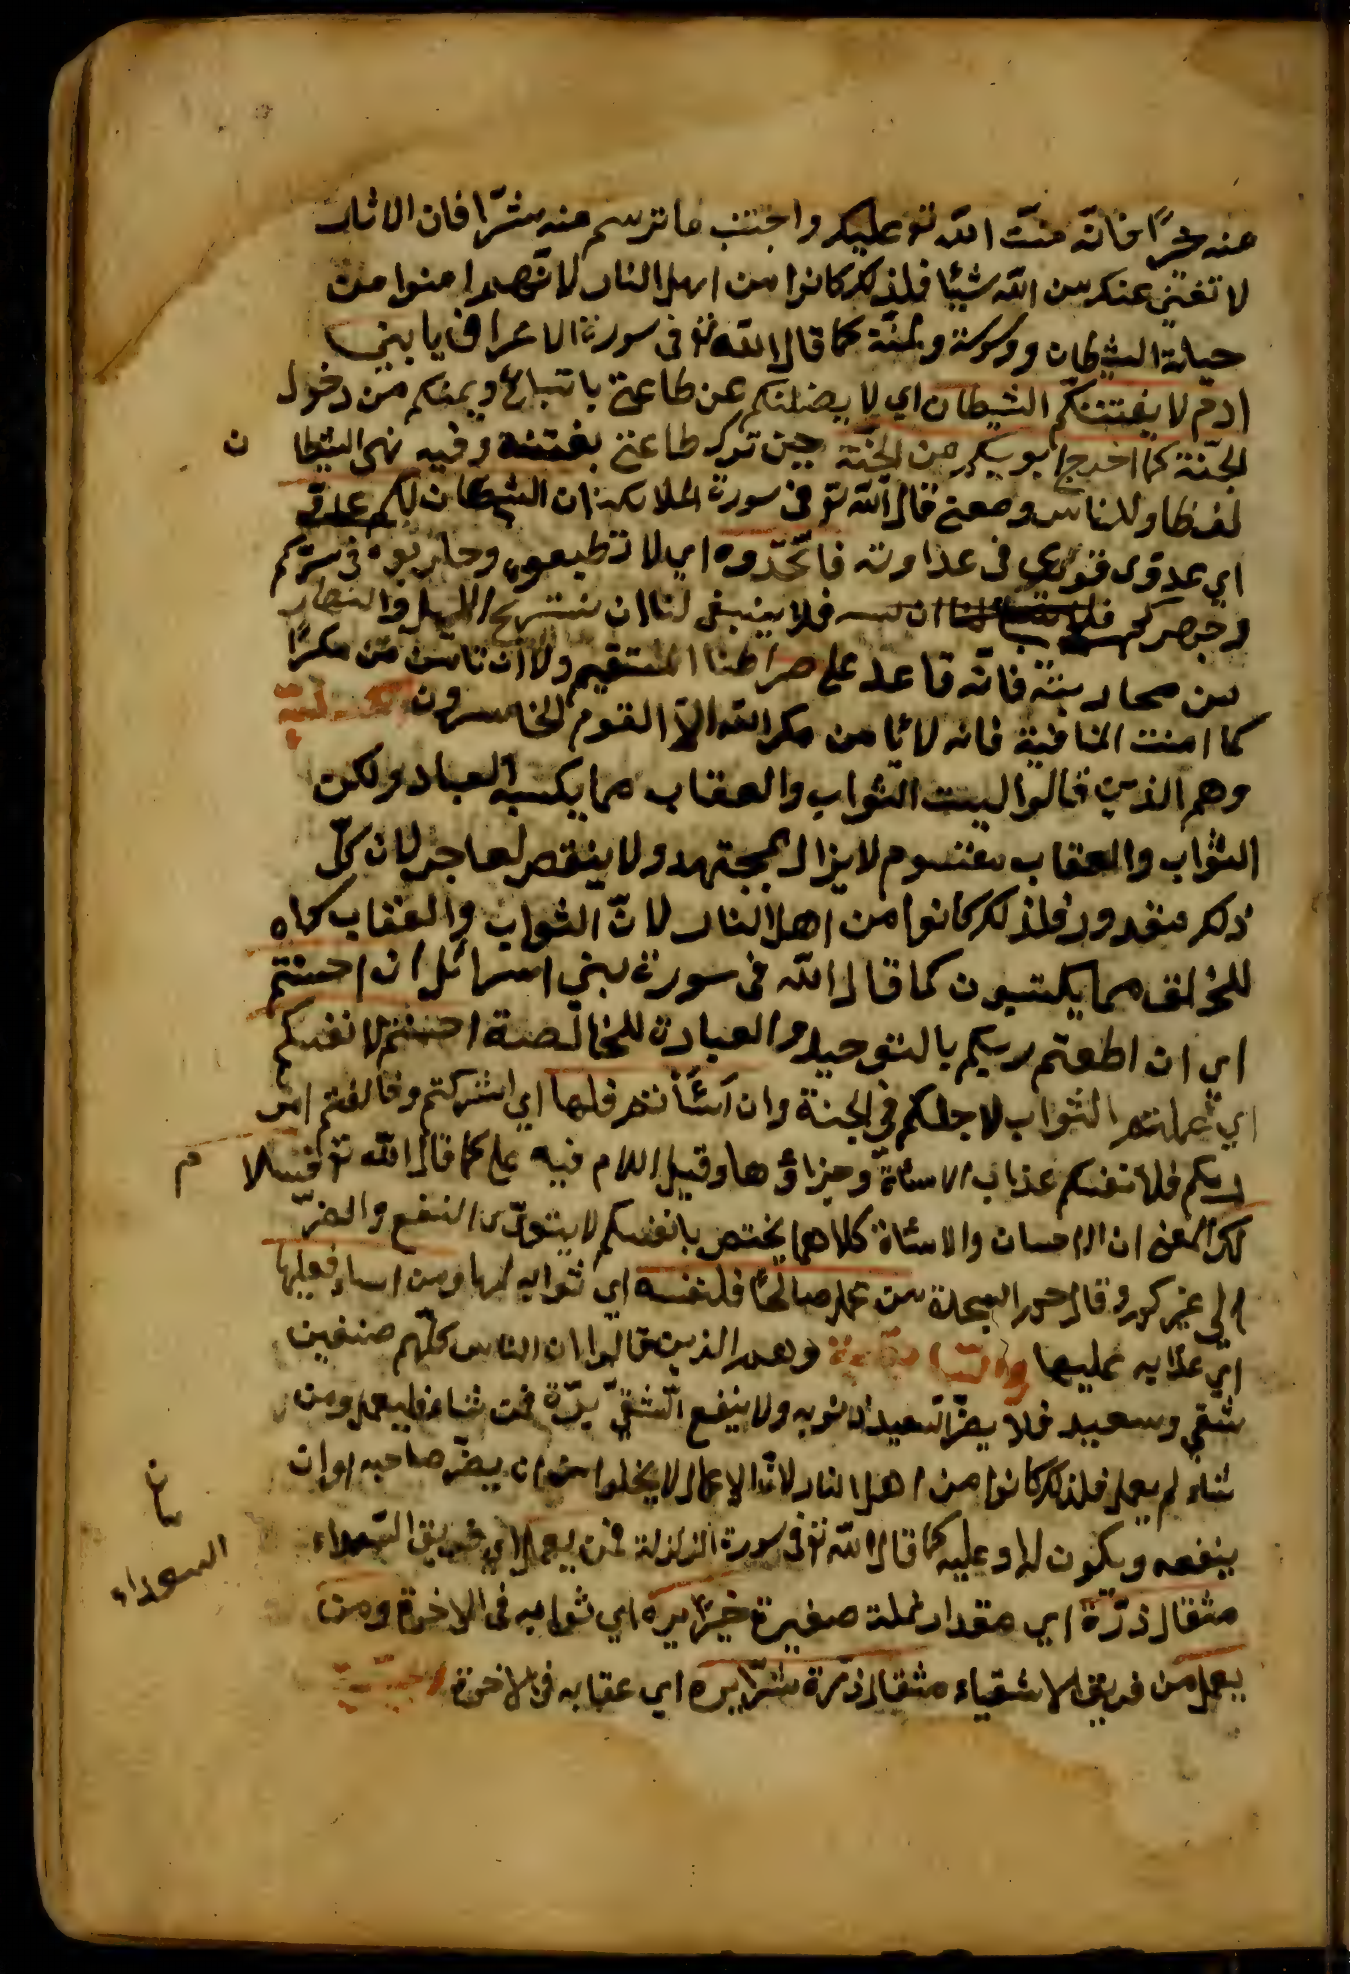 عنه خيرًا فانّه منّت الله تع عليكم واجتنب ما ترسم عنه شرّا فان الاثار
لا تغني عنكم من الله شيئا فلذلك كانوا من اهل النار لانهم امنوا من
حيلة الشيطان ووسوسته كما قال الله تع في سورة الاعراف يا بني
ادم لا يفتننكم الشيطان اي لا يضلنكم عن طاعتي باتباعه ويمنعكم من دخول
الجنّة كما اخرج ابويكم من الجنّة حين ترك طاعتي بفتنته وفيه نهى الشيطا ن
لفظا وللناس ومعنى قال الله تع في سورة الملائكة ان الشيطان لكم عدوّ
اي عدوّ قوي في عداوته فاتخذوه اي لا تطيعوه وحاربوه في سركم
وجهركم فلا ينبغي لنا ان نستريح الليل والنهار
من محاربته فانّه قاعد على صراطنا المستقيم ولا ان نامن من مكر
كما امنت المنافية فانه لا يامن من مكر الله الا القوم الخاسرون
وهم الذين قالوا ليست الثواب والعقاب مما يكسبه العباد ولكن
الثواب والعقاب مقسوم لا يزال لمجتهد ولا ينقص لعاجز لان كلّ
ذلك مقدور فلذلك كانوا من اهل النار لانّ الثواب والعقاب كله
للخلق مما يكتسبون كما قال الله في سورة بني اسرائل ان احسنتم
اي ان اطعتم ربكم بالتوحيد والعبادة الخالصة احسنتم لانفسكم
اي عملتم الثواب لاجلكم في الجنة وان اسأتم فلها اي اشركتم وخالفتم امر
ربكم فلانفسكم عذاب الاسأة وجزاؤها وقيل اللام فيه على كما قال الله تع فسلا م
لك المعنى ان الاحسان والاسأة كلاهما يختص بانفسكم لا يتعدّى النفع والضرّ
الى غيركم وقال حم السجدة من عمل صالحًا فلنفسه اي ثوابه لها ومن اساء فعليها
اي عذابه عليها وهم الذين قالوا ان الناس كلّهم صنفين
شقي وسعيد فلا يضرّ السعيد ذنوبه ولا ينفع الشقيّ برّه فمن شاء فليعمل ومن
شاء لم يعمل فلذلك كانوا من اهل النار لانّ الاعمال لا يخلوا من ان يضرّ صاحبه او ان
ينفعه ويكون له او عليه كما قال الله تع في سورة الزلزلة فمن يعمل اي فريق السعداء
مثقال ذرّة اي مقدار نملة صغيرة خيرًا يره اي ثوابه في الاخرة ومن
يعمل من فريق الاشقياء مثقال ذرّة شرّا يره اي عقابه في الاخرة
السعداء